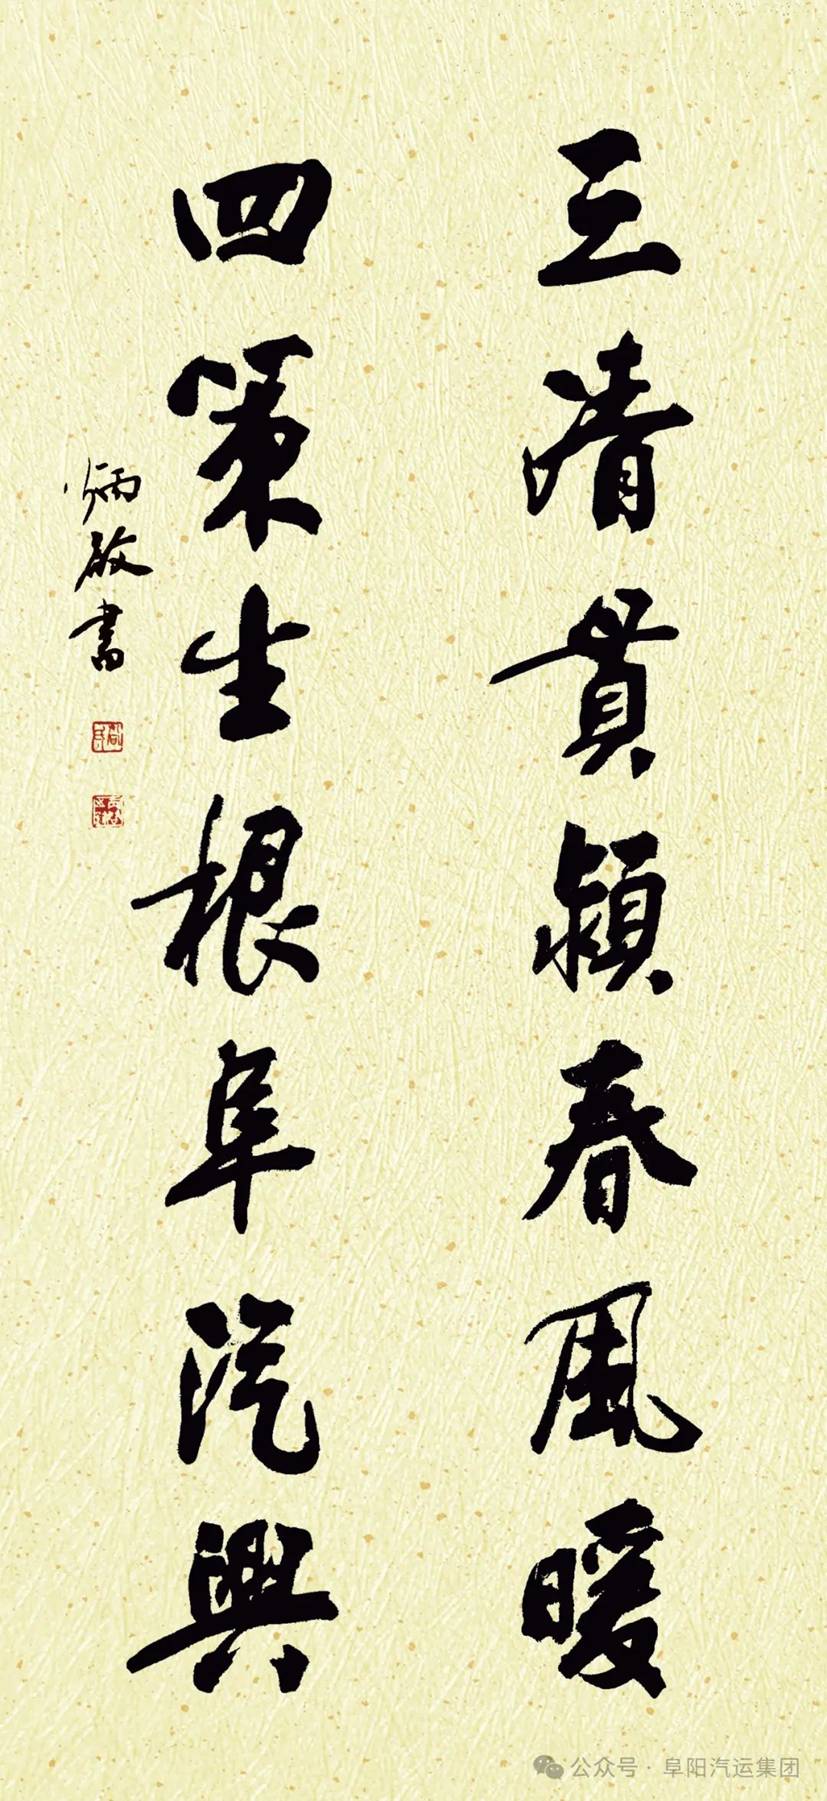 三清贯颍春风暖
四策生根阜汽興
炳啟書
公众号·阜阳汽运集团